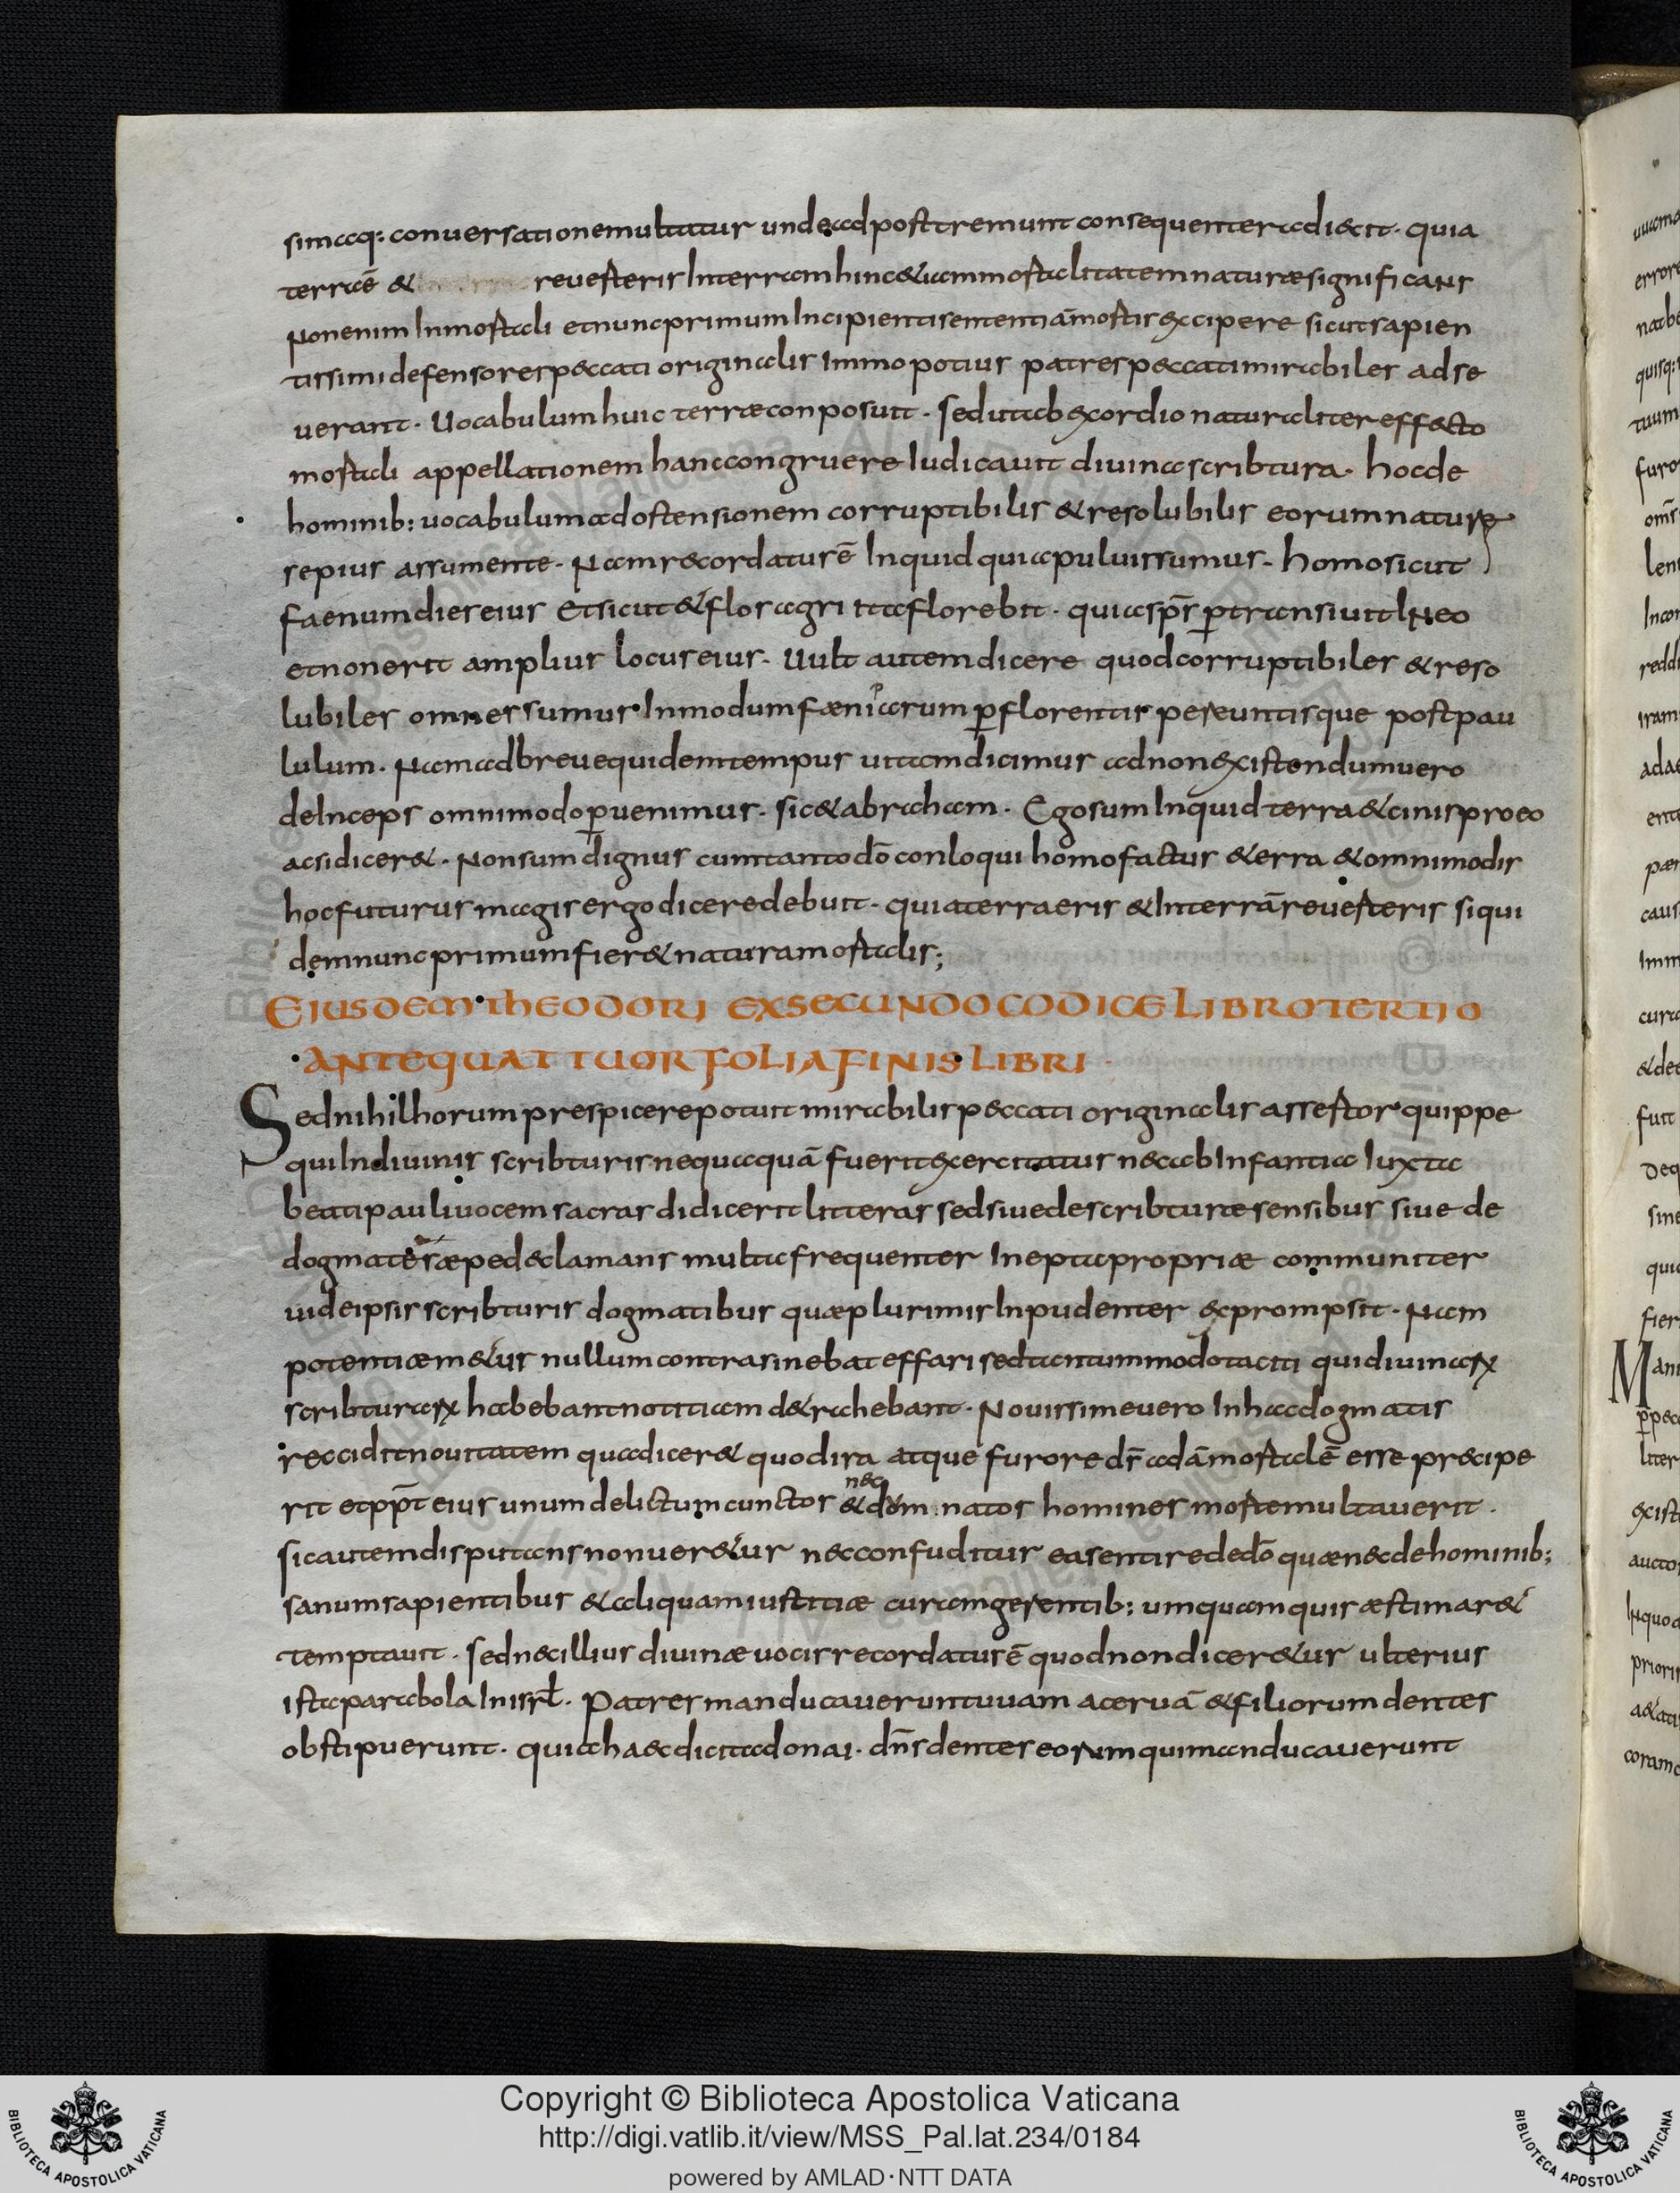 simaq: conuersationemultatur undeadpostremunt consequenteradiecit. quia
terraē & reuesteris Interram hinc&iammortalitatem naturæsignificans
Nonenim Inmortali etnuncprimum Incipientisententiāmortis excipere sicutsapien
tissimidefensorespeccati originalis Immopotius patrespeccatimirabiles adse
uerant. Uocabulumhuic terræconposuit. seditaabexordio naturaliter effecto
mortali appellationem hanccongruere Iudicauit diuinascribtura. hocde
hominib: uocabulumadostensionem corruptibilis &resolubilis eorumnature
sepius assumente. Namrecordaturē Inquid quiapuluissumus. homosicut
faenumdieseius etsicut&flosagri itaflorebit. quiasp̄s ꝑtransiuitINeo
etnonerit amplius locuseius. Uult autemdicere quodcorruptibiles &reso
lubiles omnessumus Inmodumfæniarum ꝑflorentis pereuntisque postpau
lulum. Namadbreuequidemtempus uitamdicimus adnonexistendumuero
deInceps omnimodoꝑuenimus. sic&abraham. Egosum Inquid terra&cinisproeo
acsidicer&. Nonsum dignus cumtantodō conloqui homofactus &erra &omnimodis
hocfuturus magisergodiceredebuit. quiaterraeris &Interrāreuesteris siqui
demnuncprimumfier&naturamortalis;
EIUSDEM THEODORI EXSECUNDOCODICELIBROTERTIO
ANTEQUATTUORFOLIAFINISLIBRI
Sednihilhorumprespicerepotuit mirabilispeccati originalis assertor quippe
quiIndiuinis scribturisnequaquā fueritexercitatus necabInfantia Iuxta
beatipauliuocemsacras didiceritlitteras sedsiuedescribturæsensibus siue de
dogmatesæpedeclamans multafrequenter Ineptapropriæ communiter
uideipsis scribturis dogmatibus quæplurimis Inpudenter exprompsit. Nam
potentiæm&us nullumcontrasinebateffari sedtantummodotaciti quidiuinaꝝ
scribturaꝝ habebantnotitiam d&rahebant. Nouissimeuero Inhacdogmatis
reccidit nouitatem quadicer& quodira atque furoreds̄ adāmortalē esse precipe
rit etpp̄t eius unumdelictumcunctos &dōm natos homines mortemultauerit.
nec
sicautemdisputansnonuer&ur necconfuditur easentirededō quænecdehominib:
sanumsapientibus &aliquamiustitiæ curamgerentib: umquamquis æstimar&
temptauit. sednecillius diuinæuocisrecordaturē quodnondicer&ur ulterius
istaparabola Inisrl̄. Patresmanducaueruntuuam aceruā &filiorumdentes
obstipuerunt. quiahaecdicitadonai. dn̄sdenteseorumquimanducauerunt
EIUSDEM
Copyright © Biblioteca Apostolica Vaticana
http://digi.vatlib.it/view/MSS_Pal.lat.234/0184
powered by AMLAD·NTT DATA
BIBLIOTECA APOSTOLICA VATICANA
BIBLIOTECA APOSTOLICA VATICANA